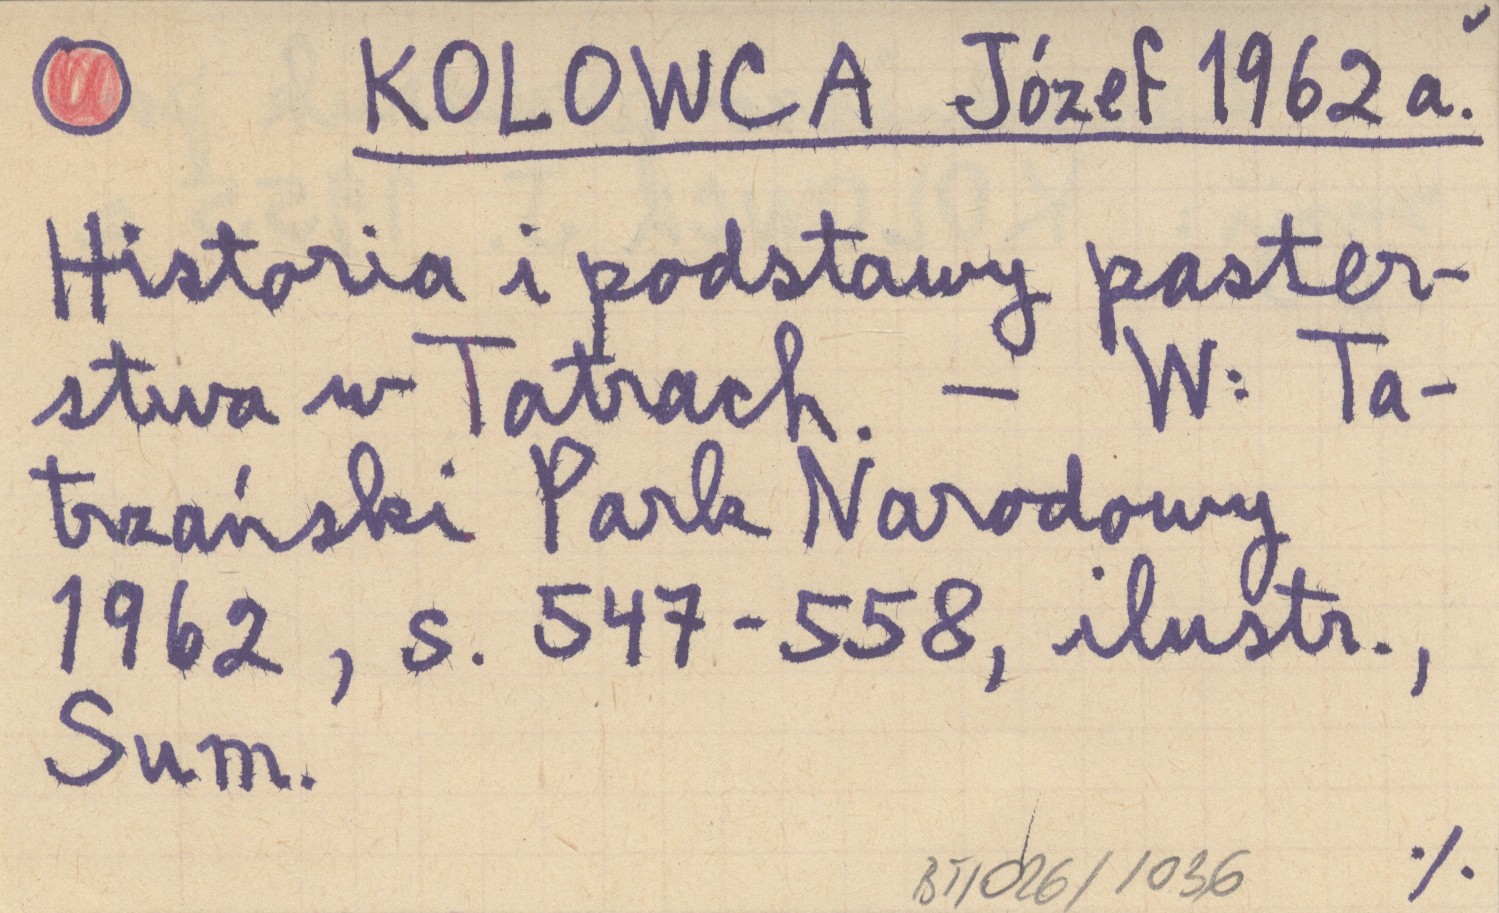 KOLOWCA Józef 1962 a.
Historia i podstawy paster-
stwa w Tatrach. — W: Ta-
trzański Park Narodowy
1962, s. 547-558, ilustr.,
Sum.
./.
/1036